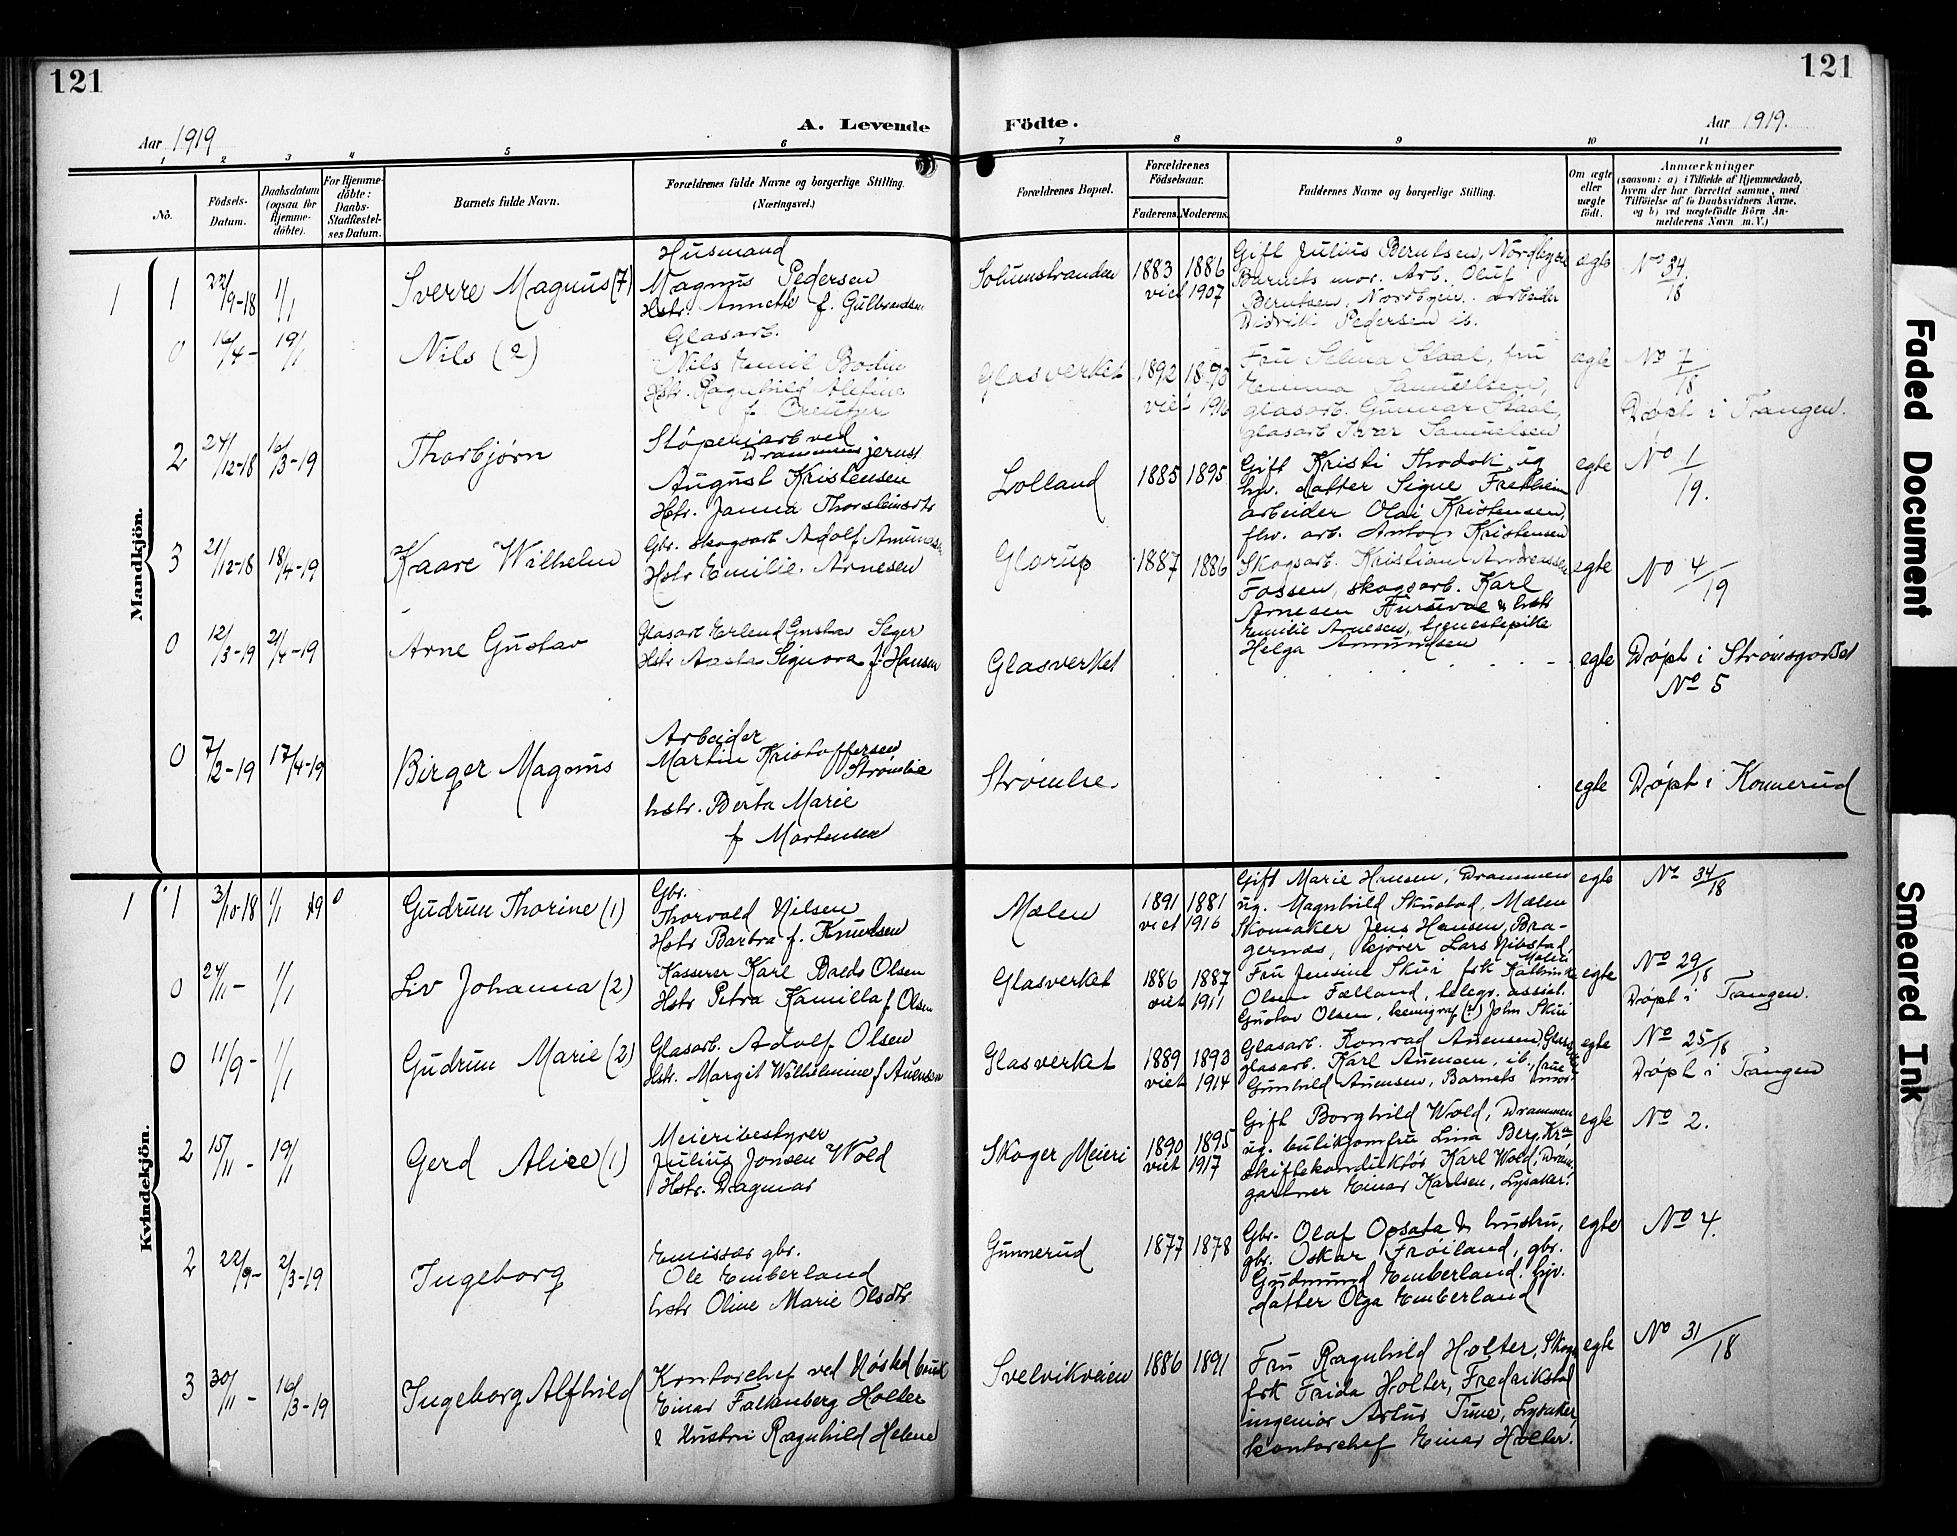 121
121
Aar 1919
A. Levende Födte.
Aar 1919.
1 2 3 4 5 6 7 8 9 10 11
No.
Födsels-Datum.
Daabsdatum (ogsaa for Hjemme-döbte).
For Hjemme-döbte: Daabs-Stadfæstel-ses Datum.
Barnets fulde Navn.
Forældrenes fulde Navne og borgerlige Stilling. (Næringsvei.)
Forældrenes Bopæl.
Forældrenes Födselsaar.
Faderens. Moderens.
Faddernes Navne og borgerlige Stilling.
Om ægte eller uægte födt.
Anmærkninger
(saasom: a) i Tilfælde af Hjemmedaab, hvem der har forrettet samme, med Tilföielse af to Daabsvidners Navne, og b) ved uægtefödte Börn An-melderens Navn m. V.)
Mandkjön.
1 1 22/9-18 1/1
Sverre Magnus (7)
Husmand
Magnus Pedersen
Hstr. Annette f. Gulbrandsen
Solumstranden
1883 1886
viet 1907
Gift Julius Berntsen, Nordbyen
Barnets mor. Arb. Oluf
Berntsen, Nordbyen. arbeider
Didrik Pedersen ib.
egte
No 34/18
0 16/4- 19/1
Nils (2)
Glasarb.
Nils Emil Bodin
Hstr. Ragnhild Alefine
f. Creutzer
Glasverket
1892 1893
viet 1916
Fru Selma Staal, fru
Emma Samuelsen,
glasarb. Gunnar Staal,
glasarb Ivar Samuelsen
egte
No 7/18
Døpt i Tangen.
2 24/12-18 16/3-19
Thorbjørn
Støperiarb ved
Drammens jernst
August Kristensen
Hstr. Janna Thorsteinsdtr
Lolland
1885 1895
Gift Kristi ug
hjv. datter Signe Fretheim
arbeider Olai Kristensen,
fhv. arb. Anton Kristensen
egte
No 1/19.
3 21/12-18 18/4-19
Kaare Wilhelm
Gbr. skogsarb Adolf Amundsen
Hstr Emilie Arnesen
Glorup
1887 1886
Skogsarb. Kristian Andreassen
Fossen, skogsarb. Karl
Arnesen & hstr
Emilie Arnesen, tjenestepike
Helga Amundsen
egte
No 4/19
0 12/3-19 21/4-19
Arne Gustav
Glasarb Erlend Gustav Seger
Hstr Signora f. Hansen
Glasverket
egte
Døpt i Strømsgodset
No 5
0 7/2-19 17/4-19
Birger Magnus
Arbeider
Martin Kristoffersen
Strømlie
hstr. Berta Marie
f Martensen
Strømlie.
egte
Døpt i Konnerud
Kvindekjön.
1 1 3/10-18 1/1 19 0
Gudrun Thorine (1)
Gbr.
Thorvald Nilsen
Hstr Barbra f. Knudsen
Mælen
1891 1881
viet 1916
Gift Marie Hansen, Drammen
ug. Magnhild Skustad, Mælen
Skomaker Jens Hansen, Bra-
gernæs, kjører Lars Vibstad,
Mælen
egte
No 34/18
0 24/11- 1/1
Liv Johanna (2)
Kasserer Karl Balds Olsen
Hstr Petra Kamilla f. Olsen
Glasverket
1886 1887
viet 1911
Fru Jensine Skui frk Kathinka
Olsen Fælland, telegr. assist.
Gustav Olsen, John Skui
egte
No 29/18
Døpt i Tangen.
0 11/9- 1/1
Gudrun Marie (2)
Glasarb. Adolf Olsen
Hstr. Margit Wilhelmine f Auensen
Glasverket
1889 1893
viet 1914
Glasarb. Konrad Auensen,
glasarb. Karl Auensen, ib., frue
Gunhild Auensen, Barnets mor.
egte
No 25/18
Døpt i Tangen
2 15/11- 19/1
Gerd Alice (1)
Meieribestyrer
Julius Jonsen Wold
Hstr. Dagmar
Skoger Meieri
1890 1895
viet 1917
Gift Borghild Wold, Drammen
ug. butikjomfru Lina Berg, Kra
skiftekonduktør Karl Wold, Dram.
gartner Einar Karlsen, Lysaker.
egte
No 2.
2 22/9- 2/3-19
Ingeborg
Emissær gbr.
Ole Emberland
hstr Oline Marie Olsdtr
Gunnerud
1877 1878
Gbr. Olaf Opsata & hustru,
gbr. Oskar Frøiland, gbr.
Gudmund Emberland. hjv.
datter Olga Emberland
egte
No 4.
3 30/11- 16/3-19
Ingeborg Alfhild
Kontorchef ved Nøsted bruk
Einar Falkenberg Holter
& Hustru Ragnhild Helene
Svelvikveien
1886 1891
Fru Ragnhild Holter, Skoger
frk Frida Holter, Fredrikstad
ingeniør Artur Tune, Lysaker,
kontorchef Einar Holter.
egte
No 31/18
Faded Document
Smeared Ink